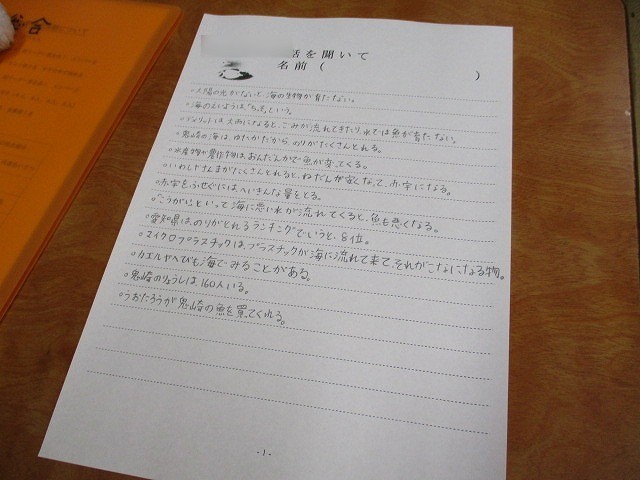 総合
話を聞いて
名前（　　　）
○太陽の光がないと、海の生物が育たない。
○海のえいようは「ちっそ」という。
○デメリットは大雨になると、ごみが流れてきたり、水では魚が育たない。
○鬼崎の海は、ゆたかだから、のりがたくさんとれる。
○水産物や農作物はおんだんかで魚が変ってくる。
○いわしやさんまがたくさんとれると、ねだんが安くなって、赤字になる。
○赤字をふせぐには、へいきんな量をとる。
○こうがいといって海に悪い水が流れてくると、魚も悪くなる。
○愛知県は、のりがとれるランキングでいうと、8位。
○マイクロプラスチックは、プラスチックが海に流れて来て、それがこなになる物。
○カエルやヘびも海でみることがある。
○鬼崎のりょうしは160人いる。
○うおたろうが鬼崎の魚を買ってくれる。
-1-